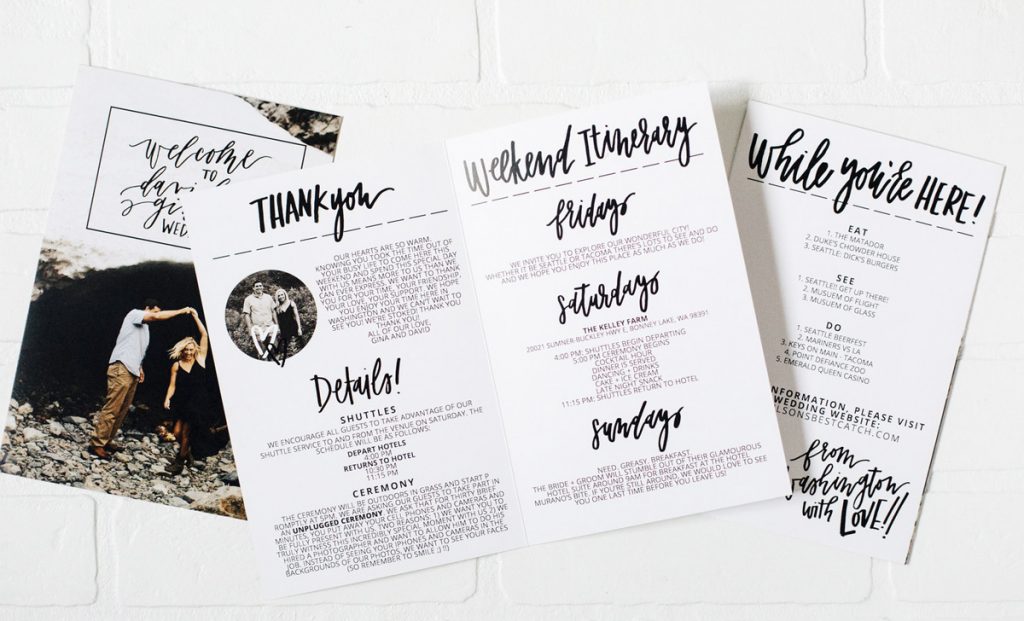 welcome
TO
WED
THANKyou
OUR HEARTS ARE SO WARM,
KNOWING YOU TOOK THE TIME OUT OF
YOUR BUSY LIFE TO COME HERE THIS
WEEKEND AND SPEND THIS SPECIAL DAY
WITH US MEANS MORE TO US THAN WE
CAN EVER EXPRESS. WE WANT TO THANK
YOU FOR YOUR TIME, YOUR FRIENDSHIP,
YOUR LOVE, YOUR SUPPORT. WE HOPE
YOU ENJOY YOUR TIME HERE IN
WASHINGTON AND WE CAN'T WAIT TO
SEE YOU! WE'RE STOKED! THANK YOU
THANK YOU!
ALL OF OUR LOVE,
GINA AND DAVID
Details!
SHUTTLES
WE ENCOURAGE ALL GUESTS TO TAKE ADVANTAGE OF OUR
SHUTTLE SERVICE TO AND FROM THE VENUE ON SATURDAY. THE
SCHEDULE WILL BE AS FOLLOWS:
DEPART HOTELS
4:00 PM
RETURNS TO HOTEL
10:30 PM
11:15 PM
CEREMONY
THE CEREMONY WILL BE OUTDOORS IN GRASS AND START P
ROMPTLY AT 5PM. WE ARE ASKING OUR GUESTS TO TAKE PART IN
AN UNPLUGGED CEREMONY. WE ASK THAT FOR THIRTY BRIEF
MINUTES, YOU PUT AWAY YOUR CELL PHONES AND CAMERAS AND
BE FULLY PRESENT WITH US. TWO REASONS: 1) WE WANT YOU TO
TRULY WITNESS THIS INCREDIBLY SPECIAL MOMENT WITH US 2) WE
HIRED A PHOTOGRAPHER AND WANT TO ALLOW HIM TO DO HIS
JOB. INSTEAD OF SEEING YOUR IPHONES AND CAMERAS IN THE
BACKGROUNDS OF OUR PHOTOS, WE WANT TO SEE YOUR FACES
(SO REMEMBER TO SMILE ;) !!)
Weekend Itinerary
fridays
WE INVITE YOU TO EXPLORE OUR WONDERFUL CITY!
WHETHER IT BE SEATTLE OR TACOMA THERE'S LOTS TO SEE AND DO
AND WE HOPE YOU ENJOY THIS PLACE AS MUCH AS WE DO!
saturdays
THE KELLEY FARM
20021 SUMNER-BUCKLEY HWY E, BONNEY LAKE, WA 98391
4:00 PM: SHUTTLES BEGIN DEPARTING
5:00 PM CEREMONY BEGINS
COCKTAIL HOUR
DINNER IS SERVED
DANCING + DRINKS
CAKE + ICE CREAM
LATE NIGHT SNACK
11:15 PM: SHUTTLES RETURN TO HOTEL
sundays
NEED. GREASY. BREAKFAST.
THE BRIDE + GROOM WILL STUMBLE OUT OF THEIR GLAMOUROUS
HOTEL SUITE AROUND 9AM FOR BREAKFAST AT THE HOTEL
MURANO'S BITE. IF YOU'RE STILL AROUND, WE WOULD LOVE TO SEE
YOU ONE LAST TIME BEFORE YOU LEAVE US!
While you're HERE!
EAT
1. THE MATADOR
2. DUKE'S CHOWDER HOUSE
3. SEATTLE: DICK'S BURGERS
SEE
1. SEATTLE!! GET UP THERE!
2. MUSUEM OF FLIGHT
3. MUSUEM OF GLASS
DO
1. SEATTLE BEERFEST
2. MARINERS VS LA
3. KEYS ON MAIN - TACOMA
4. POINT DEFIANCE ZOO
5. EMERALD QUEEN CASINO
INFORMATION, PLEASE VISIT
WEDDING WEBSITE:
LSONSBESTCATCH.COM
from
washington
with LOVE!!